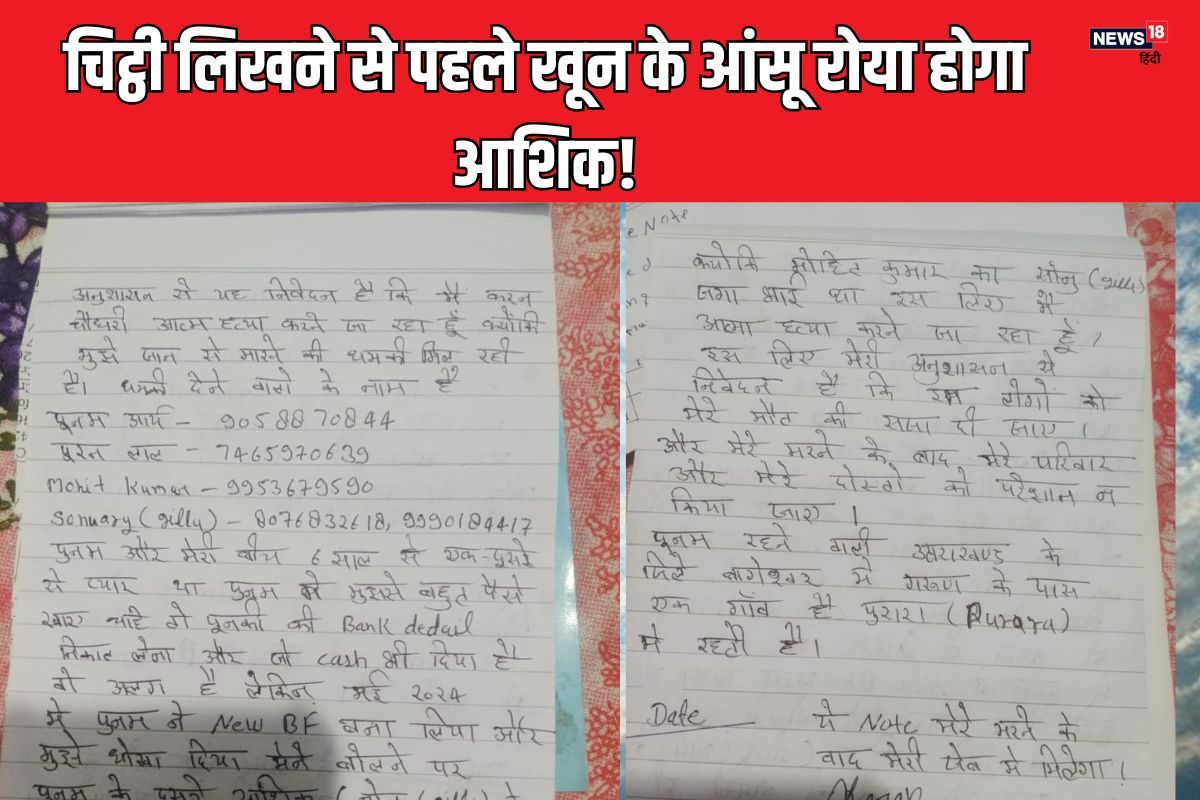 चिट्ठी लिखने से पहले खून के आंसू रोया होगा
आशिक!
NEWS 18
हिंदी
अनुशासन से यह निवेदन है कि मै करन
चौधरी आत्म हत्या करने जा रहा हूँ क्योंकि
मुझे जान से मारने की धमकी मिल रही
है। धमकी देने वालो के नाम है
पूनम आर्य - 9058870844
पूरन लाल - 7465970639
Mohit Kumar - 9953679590
(gilly) - 8076832618, 9990184417
पुनम और मेरी बीच 6 साल से एक-दुसरे
से प्यार था पुनम ने मुझसे बहुत पैसे
की Bank dedail
निकाल लेना और जो cash भी दिया है
वो अलग है लेकिन मई 2024
मे पुनम ने New BF बना लिया और
मुझे धोखा दिया मेने बोलने पर
पुनम के दुसरे आशिक (gilly) ने
e Note
क्योकि मोहित कुमार का सोनु (gilly)
सगा भाई था इस लिए मै
आत्मा हत्या करने जा रहा हूँ,
इस लिए मेरी अनुशासन से
निवेदन है कि इन लोगों को
मेरे मौत की सजा दी जाए।
और मेरे मरने के बाद मेरे परिवार
और मेरे दोस्तो को परेशान न
किया जाए।
पूनम रहने वाली उत्तराखण्ड के
जिले बागेश्वर मे गरूण के पास
एक गाँव है पुरारा (Purara)
मे रहती है।
Date
ये Note मेरे मरने के
बाद मेरी जेब मे मिलेगा!
Karan